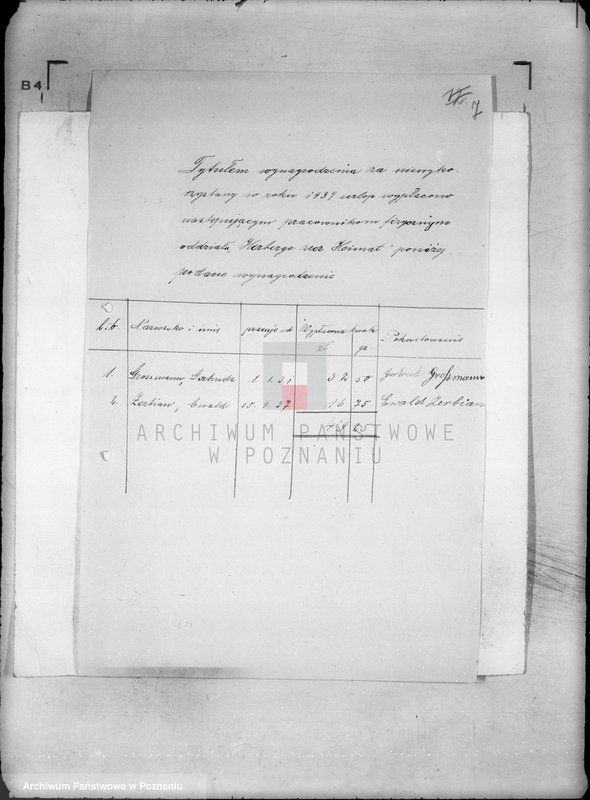 B4
7
Tytułem wynagrodzenia za niewyko-
rzystany w roku 1939 urlop wypłacono
następującym pracownikom fizycznym
oddziału "Herberge zur Heimat" poniżej
podane wynagrodzenie
L.b. Nazwisko i imię pracuje od Wypłacona kwota Pokwitowanie
zł gr.
1. Grossmann Gertruda 1.1.31 32 50 Gertrud Großmann
2. Zerbian, Ewald 15.9.37 16 75 Ewald Zerbian
ARCHIWUM PAŃSTWOWE
W POZNANIU
Archiwum Państwowe w Poznaniu